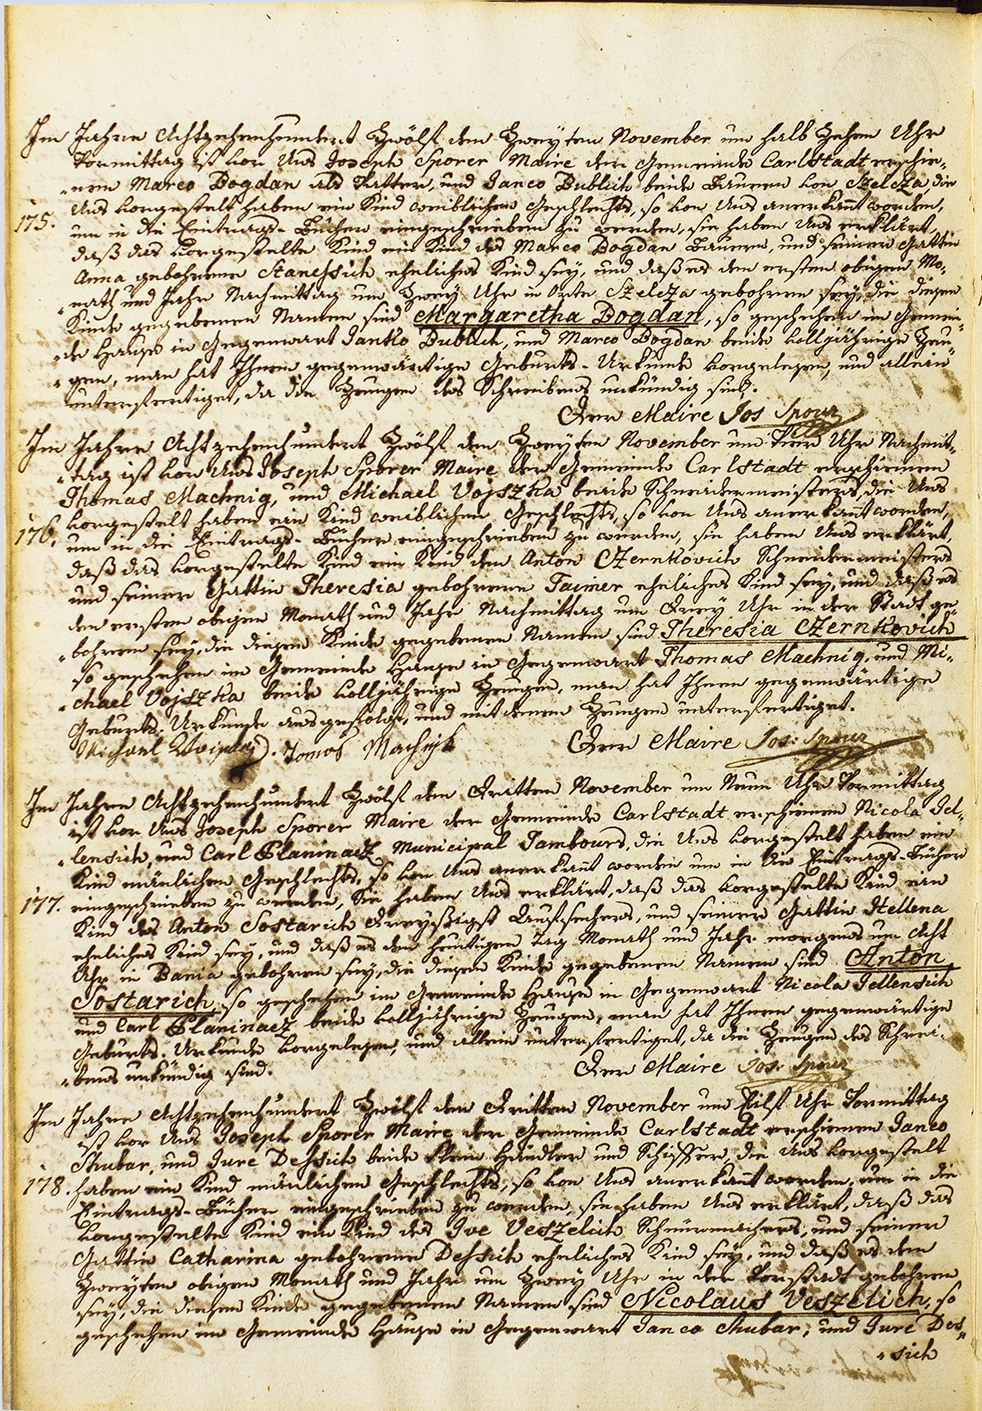 Im Jahre Achtzehenhundert Zwölf den Zweyten November um halb Zehen Uhr
Vormittag ist vor Uns Joseph Sporer Maire der Gemeinde Carlstadt erschie-
nen Marco Bogdan als Vatter, und Janco Dublich beide Bauern von Szelcza, die
Uns vorgestelt haben ein Kind weiblichen Geschlechts, so von Uns anerkant worden,
175. um in die Eintrags-Bücher eingeschrieben zu werden, sie haben Uns erklärt,
daß das vorgestelte Kind ein Kind des Marco Bogdan Bauern, und seiner Gattin
Anna gebohrene Stanessich eheliches Kind sey, und daß es den ersten obigen Mo-
nath und Jahr Nachmittag um Zwey Uhr in Orte Szelcza gebohren sey, die diesen
Kinde gegebenen Namen sind Margaretha Bogdan, so geschehen im Gemein-
de Hause in Gegenwart Janko Dublich, und Marco Bogdan beide volljährige Zeu-
gen, man hat Ihnen gegenwärtige Geburts-Urkunde vorgelesen, und allein
unterfertiget, da die Zeugen des Schreibens unkündig sind.
Der Maire Jos Sporer
Im Jahre Achtzehenhundert Zwölf den Zweyten November um Vier Uhr Nachmit-
tag ist vor Uns Joseph Sporer Maire der Gemeinde Carlstadt erschienen
Thomas Machnig, und Michael Vojszka beide Schneidermeisters, die Uns
vorgestelt haben ein Kind weiblichen Geschlechts, so von Uns anerkant worden,
176. um in die Eintrags-Bücher eingeschrieben zu werden, sie haben Uns erklärt,
daß das vorgestelte Kind ein Kind des Anton Czernkovich Schneidermeisters
und seiner Gattin Theresia gebohrene Taimer eheliches Kind sey, und daß es
den ersten obigen Monath und Jahr Nachmittag um Drey Uhr in der Stadt ge-
bohren sey, die diesen Kinde gegebenen Namen sind Theresia Czernkovich
so geschehen im Gemeinde Hause in Gegenwart Thomas Machnig, und Mi-
chael Vojszka beide volljährige Zeugen, man hat Ihnen gegenwärtige
Geburts-Urkunde ausgefolgt, und mit denen Zeugen unterfertiget.
Michael Tomas Machnik Der Maire Jos: Sporer
Im Jahre Achtzehenhundert Zwölf den Dritten November um Neun Uhr Vormittag
ist vor Uns Joseph Sporer Maire der Gemeinde Carlstadt erschienen Nicola Jel-
lensich, und Carl Planinacz Municipal Tambours, die Uns vorgestelt haben ein
Kind mänlichen Geschlechts, so von Uns anerkant worden um in die Eintrags-Bücher
177. eingeschrieben zu werden, Sie haben Uns erklärt, daß das vorgestelte Kind ein
Kind des Anton Sostarich Dreyßigst Aufsehers, und seiner Gattin Hellena
eheliches Kind sey, und daß es den heutigen Tag Monath und Jahr morgens um Acht
Uhr in Bania gebohren sey, die diesen Kinde gegebenen Namen sind Anton
Sostarich so geschehen im Gemeinde Hause in Gegenwart Nicola Jellensich
und Carl Planinacz beide volljährige Zeugen, man hat Ihnen gegenwärtige
Geburts-Urkunde vorgelesen, und allein unterfertiget, da die Zeugen des Schrei-
bens unkündig sind. Der Maire Jos: Sporer
Im Jahre Achtzehenhundert Zwölf den Dritten November um Eilf Uhr Vormittag
ist vor Uns Joseph Sporer Maire der Gemeinde Carlstadt erschienen Janco
Skubar, und Jure Dessich beide klein Händler und Schiffer, die Uns vorgestelt
178. haben ein Kind mänlichen Geschlechts, so von Uns anerkant worden, um in die
Eintrags-Bücher eingeschrieben zu werden, sie haben Uns erklärt, daß das
vorgestelte Kind ein Kind des Ive Veszelich Schnürmachers, und seiner
Gattin Catharina gebohrene Dessich eheliches Kind sey, und daß es den
Zweyten obigen Monath und Jahr um Zwey Uhr in der Vorstadt gebohren
sey, die diesen Kinde gegebenen Namen sind Nicolaus Veszelich, so
geschehen im Gemeinde Hause in Gegenwart Janco Skubar, und Jure Des-
sich